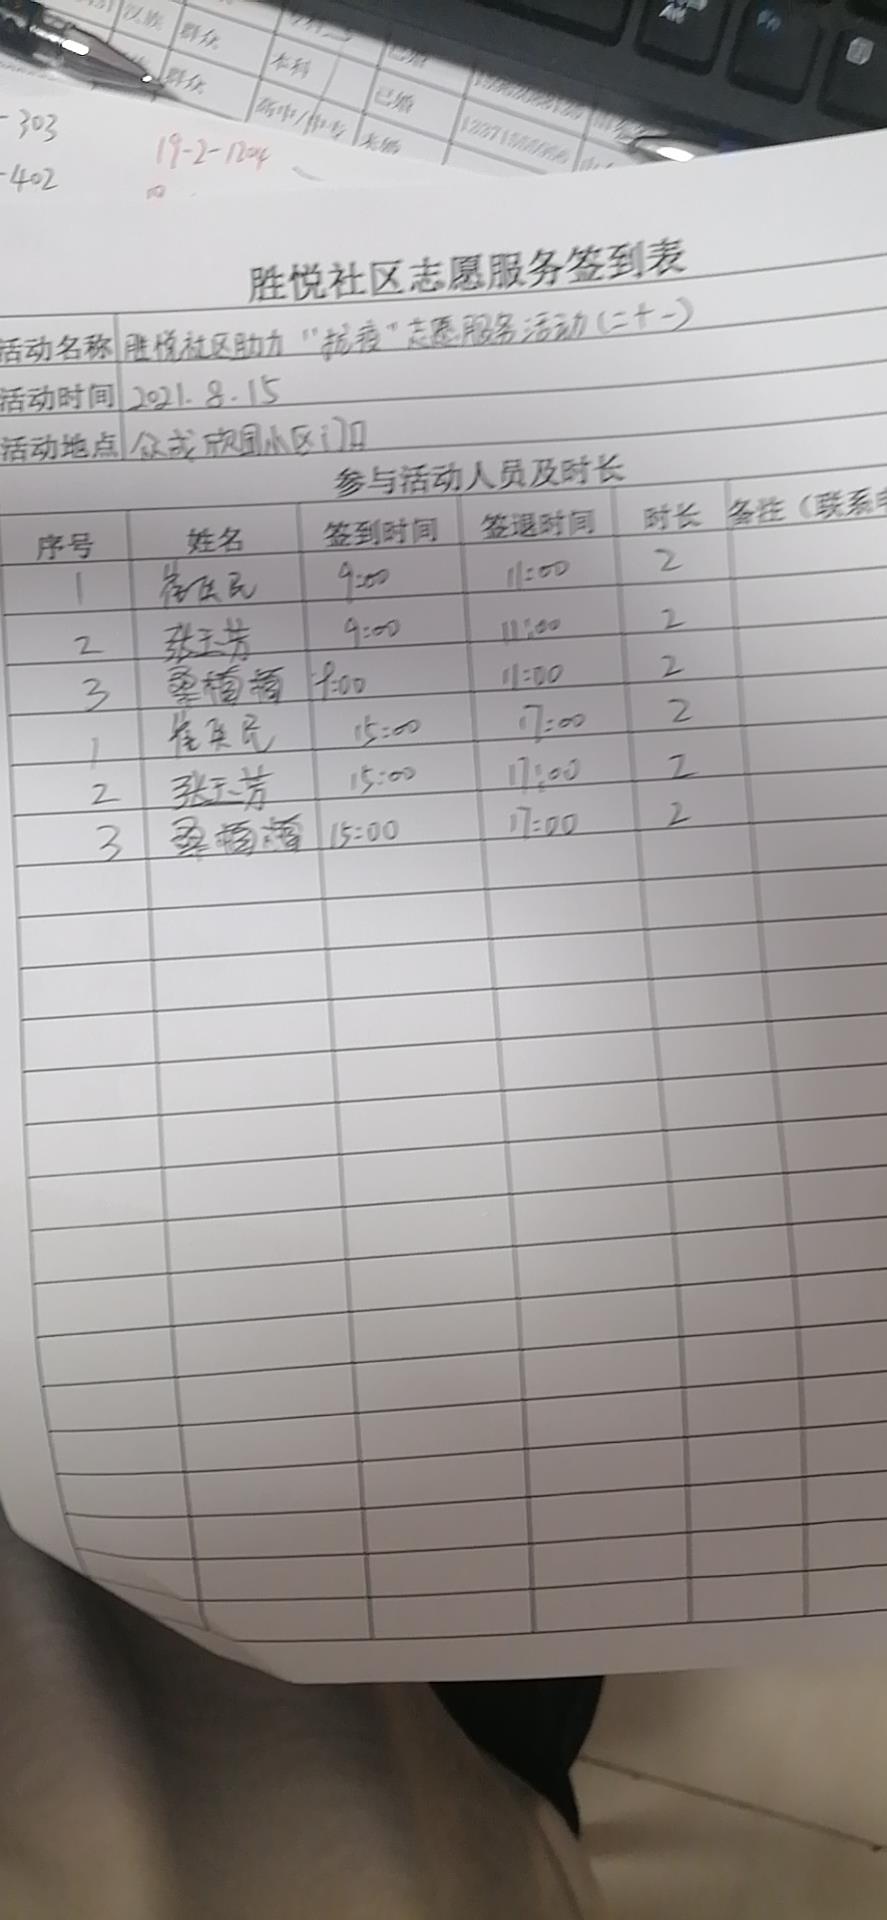 汉族 群众
群众 本科
已婚
高中/中专 未婚
-303
-402
19-2-1204
胜悦社区志愿服务签到表
活动名称 胜悦社区助力“抗疫”志愿服务活动(二十一)
活动时间 2021.8.15
活动地点 众成欣园小区门口
参与活动人员及时长
序号 姓名 签到时间 签退时间 时长 备注(联系
1 9:00 11:00 2
2 张玉芳 9:00 11:00 2
3 9:00 11:00 2
1 15:00 17:00 2
2 张玉芳 15:00 17:00 2
3 15:00 17:00 2